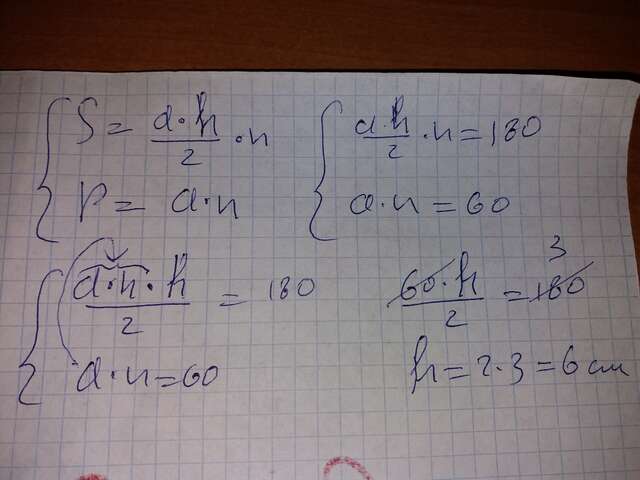 S = a·h/2 · n
P = a·n
ah/2 · n = 180
a·n = 60
a·n·h/2 = 180
a·n = 60
60·h/2 = 180 3
h = 2·3 = 6 cm